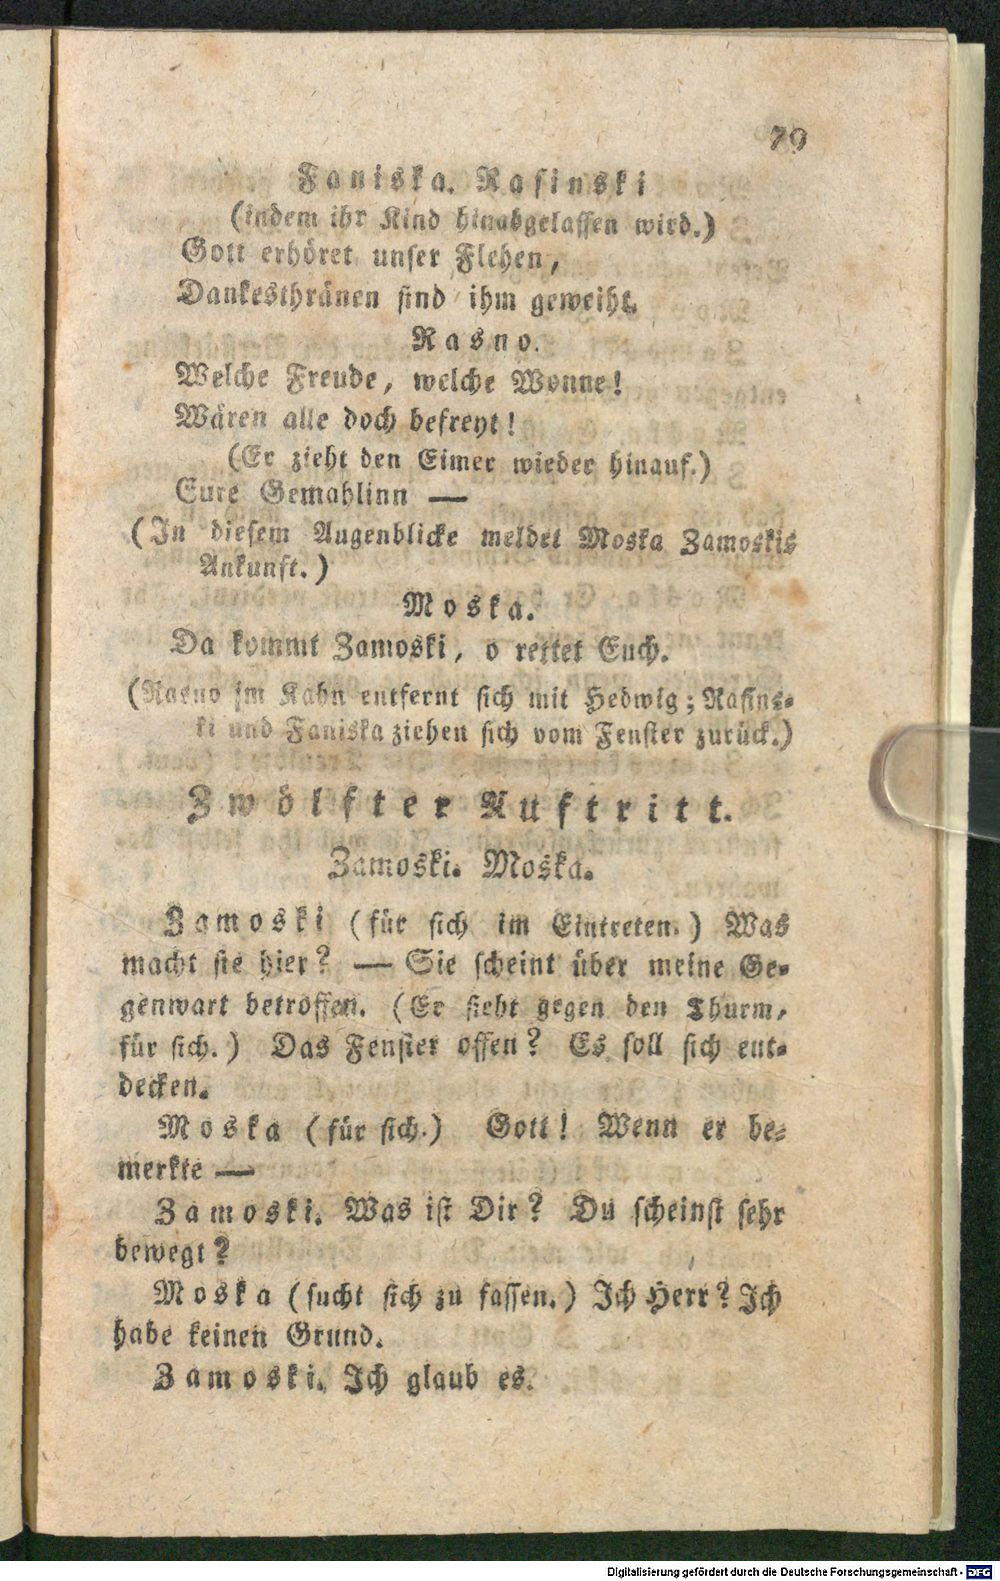 79
Faniska. Rasinski
(indem ihr Kind hinabgelassen wird.)
Gott erhöret unser Flehen,
Dankesthränen sind ihm geweiht.
Rasno.
Welche Freude, welche Wonne!
Wären alle doch befreyt!
(Er zieht den Eimer wieder hinauf.)
Eure Gemahlinn —
(In diesem Augenblicke meldet Moska Zamoskis
Ankunft.)
Moska.
Da kommt Zamoski, o rettet Euch.
(Rasno im Kahn entfernt sich mit Hedwig; Rasins-
ki und Faniska ziehen sich vom Fenster zurück.)
Zwölfter Auftritt.
Zamoski. Moska.
Zamoski (für sich im Eintreten.) Was
macht sie hier? — Sie scheint über meine Ge-
genwart betroffen. (Er sieht gegen den Thurm,
für sich.) Das Fenster offen? Es soll sich ent-
decken.
Moska (für sich.) Gott! Wenn er be-
merkte —
Zamoski. Was ist Dir? Du scheinst sehr
bewegt?
Moska (sucht sich zu fassen.) Ich Herr? Ich
habe keinen Grund.
Zamoski. Ich glaub es.
Digitalisierung gefördert durch die Deutsche Forschungsgemeinschaft - DFG